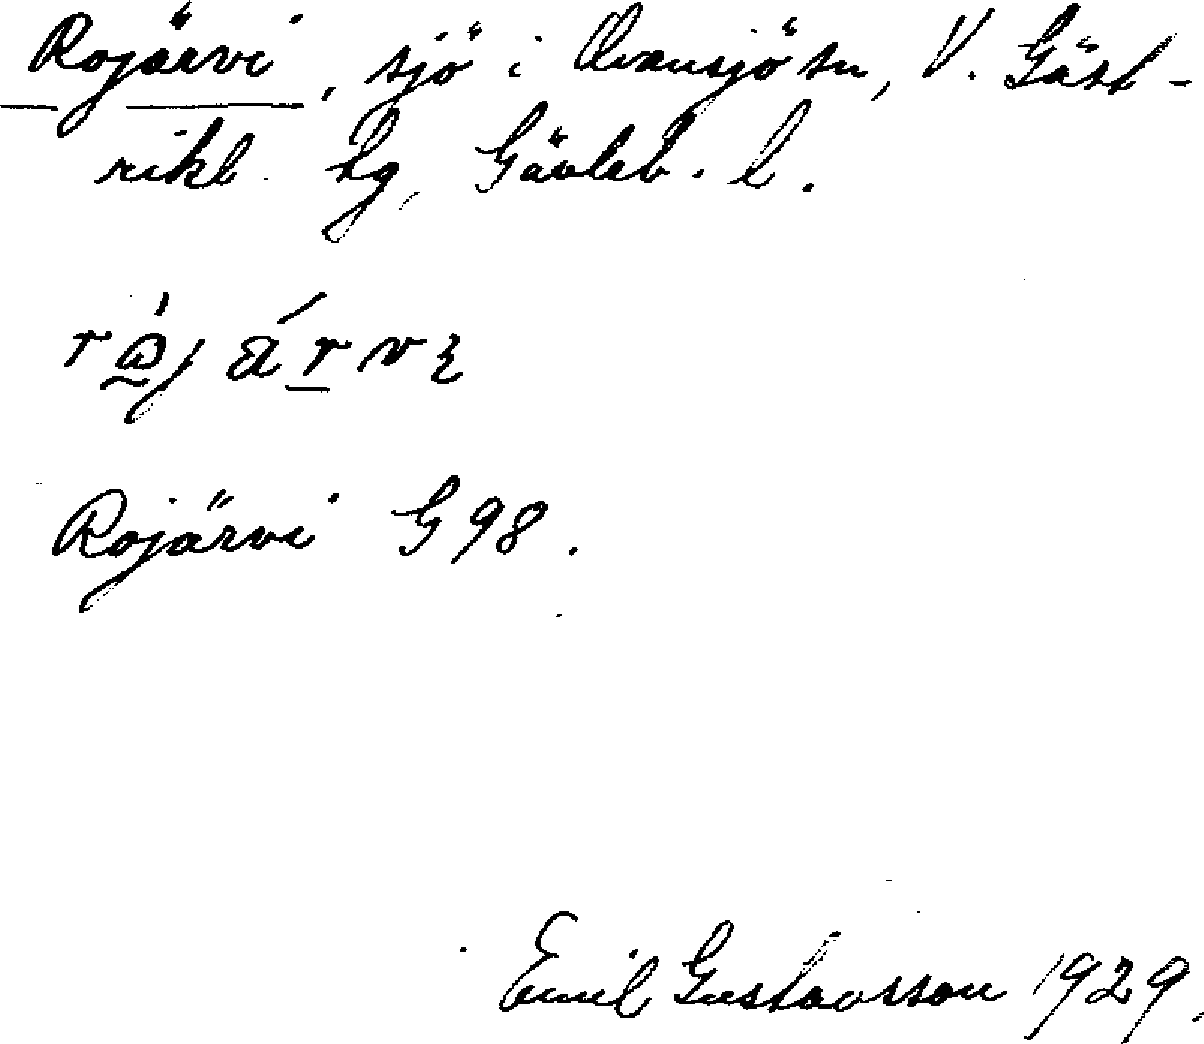 Rojärvi, sjö i Ovansjö sn, V. Gäst-
rikl. hg, Gävleb. l.
Rojärvi G 98.
Emil Gustavsson 1929.